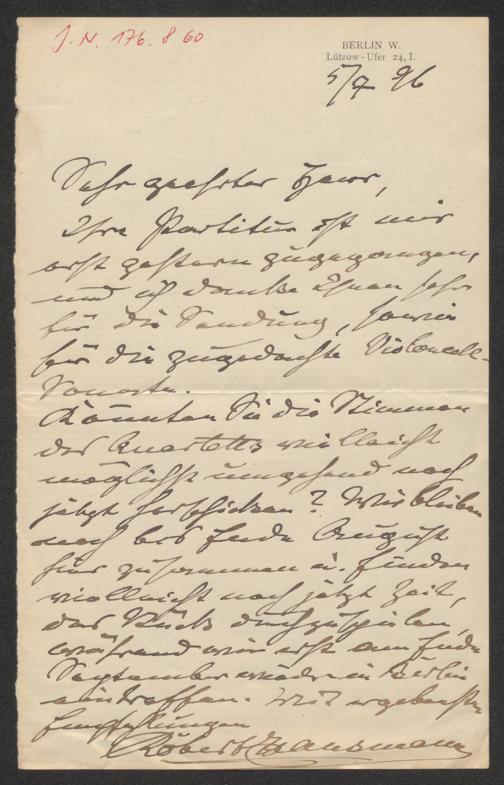 J. N. 176.860
BERLIN W.
Lützow-Ufer 24, I.
5/7 96
Sehr geehrter Herr,
Ihre Partitur ist mir
erst gestern zugegangen,
und ich danke Ihnen sehr
für die Sendung, sowie
für die zugedachte Violoncell-
Sonate.
Könnten Sie die Stimmen
des Quartetts vielleicht
möglichst umgehend noch
jetzt herschicken? Wir bleiben
noch bis Ende August
hier zusammen u. finden
vielleicht noch jetzt Zeit,
das Stück durchzuspielen,
während wir erst am Ende
September wieder in Berlin
eintreffen. Mit ergebensten
Empfehlungen
Robert Hausmann